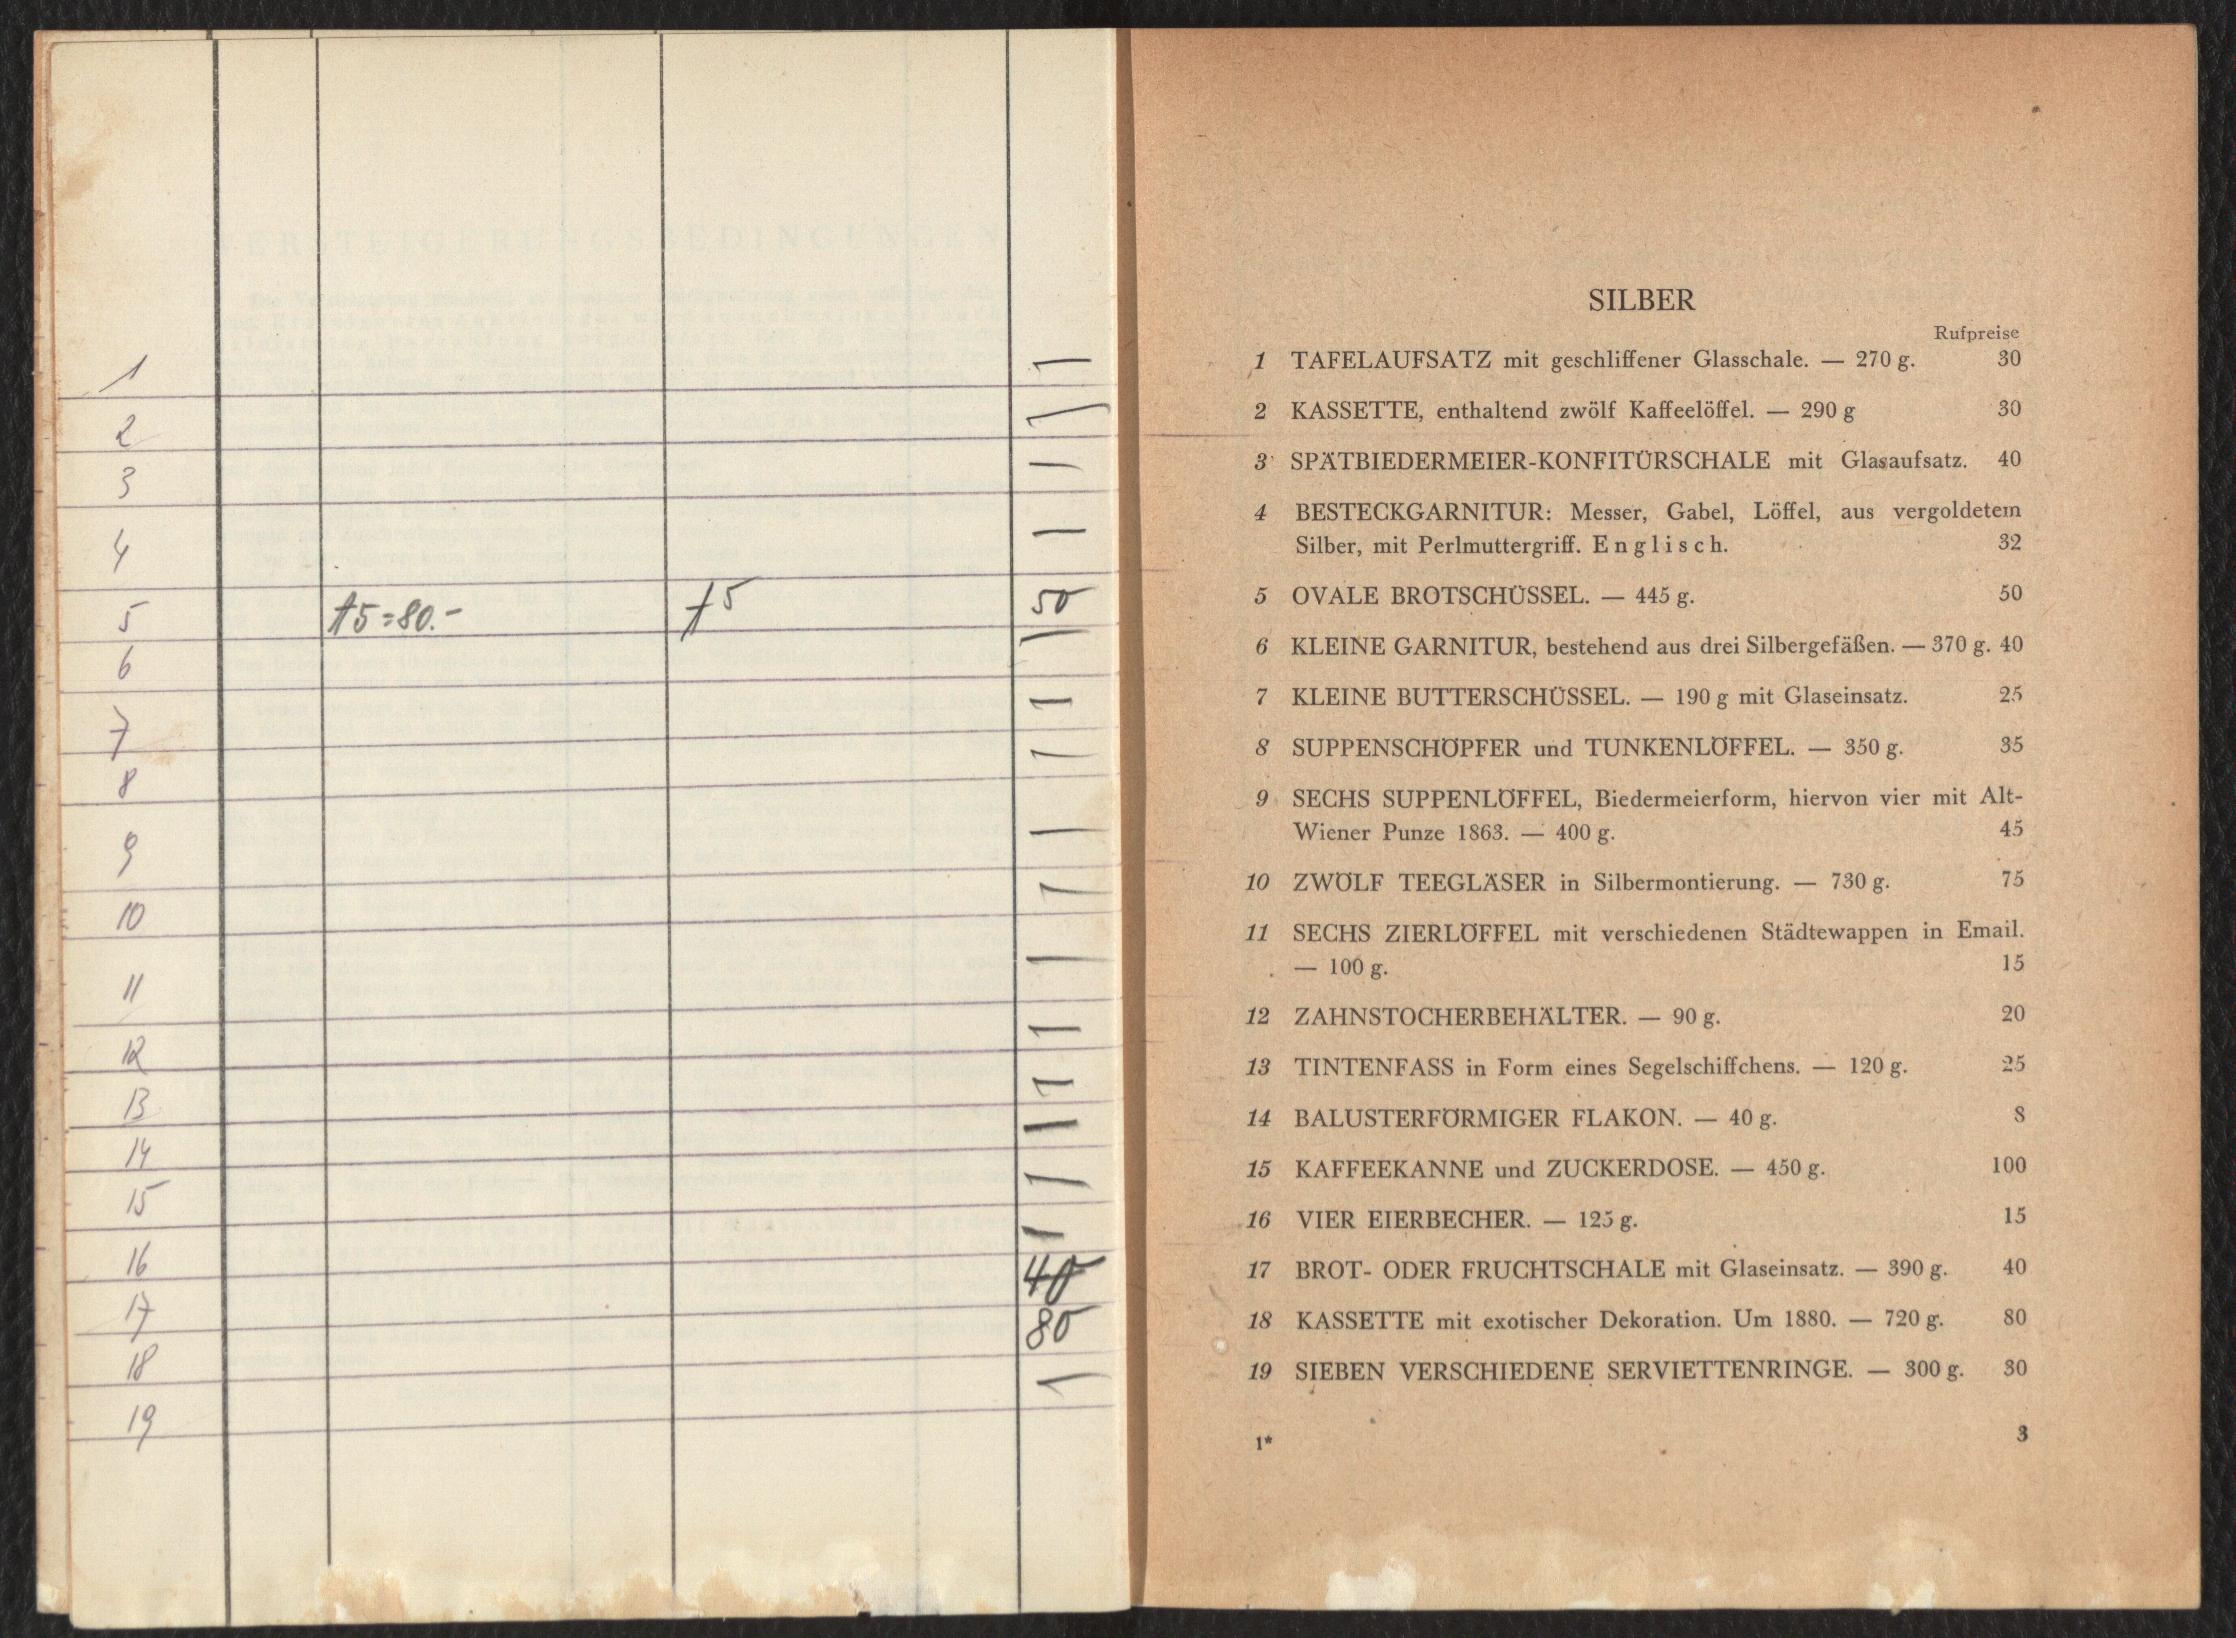 VERSTEIGERUNGSBEDINGUNGEN
1
2
3
4
5 †5=80.- †5 50
6
7
8
9
10
11
12
13
14
15
16
17 40
18 80
19
SILBER
Rufpreise
1 TAFELAUFSATZ mit geschliffener Glasschale. — 270 g. 30
2 KASSETTE, enthaltend zwölf Kaffeelöffel. — 290 g 30
3 SPÄTBIEDERMEIER-KONFITÜRSCHALE mit Glasaufsatz. 40
4 BESTECKGARNITUR: Messer, Gabel, Löffel, aus vergoldetem
Silber, mit Perlmuttergriff. Englisch. 32
5 OVALE BROTSCHÜSSEL. — 445 g. 50
6 KLEINE GARNITUR, bestehend aus drei Silbergefäßen. — 370 g. 40
7 KLEINE BUTTERSCHÜSSEL. — 190 g mit Glaseinsatz. 25
8 SUPPENSCHÖPFER und TUNKENLÖFFEL. — 350 g. 35
9 SECHS SUPPENLÖFFEL, Biedermeierform, hiervon vier mit Alt-
Wiener Punze 1863. — 400 g. 45
10 ZWÖLF TEEGLÄSER in Silbermontierung. — 730 g. 75
11 SECHS ZIERLÖFFEL mit verschiedenen Städtewappen in Email.
— 100 g. 15
12 ZAHNSTOCHERBEHÄLTER. — 90 g. 20
13 TINTENFASS in Form eines Segelschiffchens. — 120 g. 25
14 BALUSTERFÖRMIGER FLAKON. — 40 g. 8
15 KAFFEEKANNE und ZUCKERDOSE. — 450 g. 100
16 VIER EIERBECHER. — 125 g. 15
17 BROT- ODER FRUCHTSCHALE mit Glaseinsatz. — 390 g. 40
18 KASSETTE mit exotischer Dekoration. Um 1880. — 720 g. 80
19 SIEBEN VERSCHIEDENE SERVIETTENRINGE. — 300 g. 30
1*
3